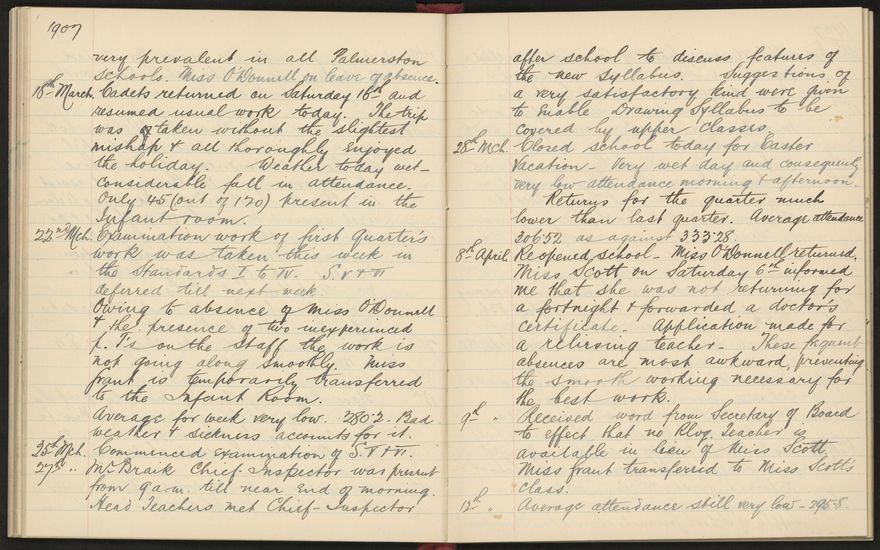 1907
very prevalent in all Palmerston
schools. Miss O'Donnell on leave of absence.
18th March. Cadets returned on Saturday 16th and
resumed usual work today. The trip
was taken without the slightest
mishap & all thoroughly enjoyed
the holiday. Weather today wet -
considerable fall in attendance.
Only 45 (out of 120) present in the
Infant room.
22nd Mch. Examination work of first Quarter's
work was taken this week in
the Standards I to IV. S. V & VI
deferred till next week.
Owing to absence of Miss O'Donnell
& the presence of two inexperienced
p. T's on the staff the work is
not going along smoothly. Miss
Grant is temporarily transferred
to the Infant Room.
Average for week very low. 280.2. Bad
weather & sickness accounts for it.
25th Mch. Commenced examination of S. V & VI.
27th " Mr Braik Chief-Inspector was present
from 9 a.m. till near end of morning.
Head Teachers met Chief-Inspector
after school to discuss features of
the new syllabus. Suggestions of
a very satisfactory kind were given
to enable Drawing Syllabus to be
covered by upper classes.
28th Mch. Closed school today for Easter
Vacation - Very wet day and consequently
very low attendance morning & afternoon.
Returns for the quarter much
lower than last quarter. Average attendance
306.52 as against 333.28
8th April Reopened school - Miss O'Donnell returned.
Miss Scott on Saturday 6th informed
me that she was not returning for
a fortnight & forwarded a doctor's
certificate. Application made for
a relieving teacher - These frequent
absences are most awkward, preventing
the smooth working necessary for
the best work.
9th " Received word from Secretary of Board
to effect that no Rlvg. Teacher is
available in lieu of Miss Scott.
Miss Grant transferred to Miss Scott's
class.
12th " Average attendance still very low - 295.5.